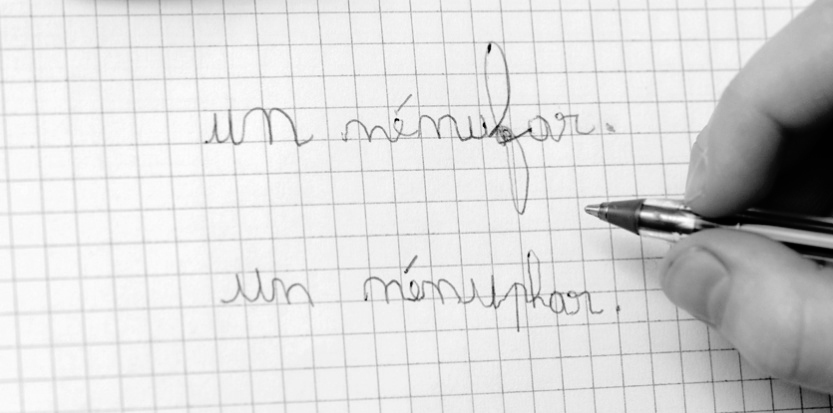 un ménufar.
un ménuphar.